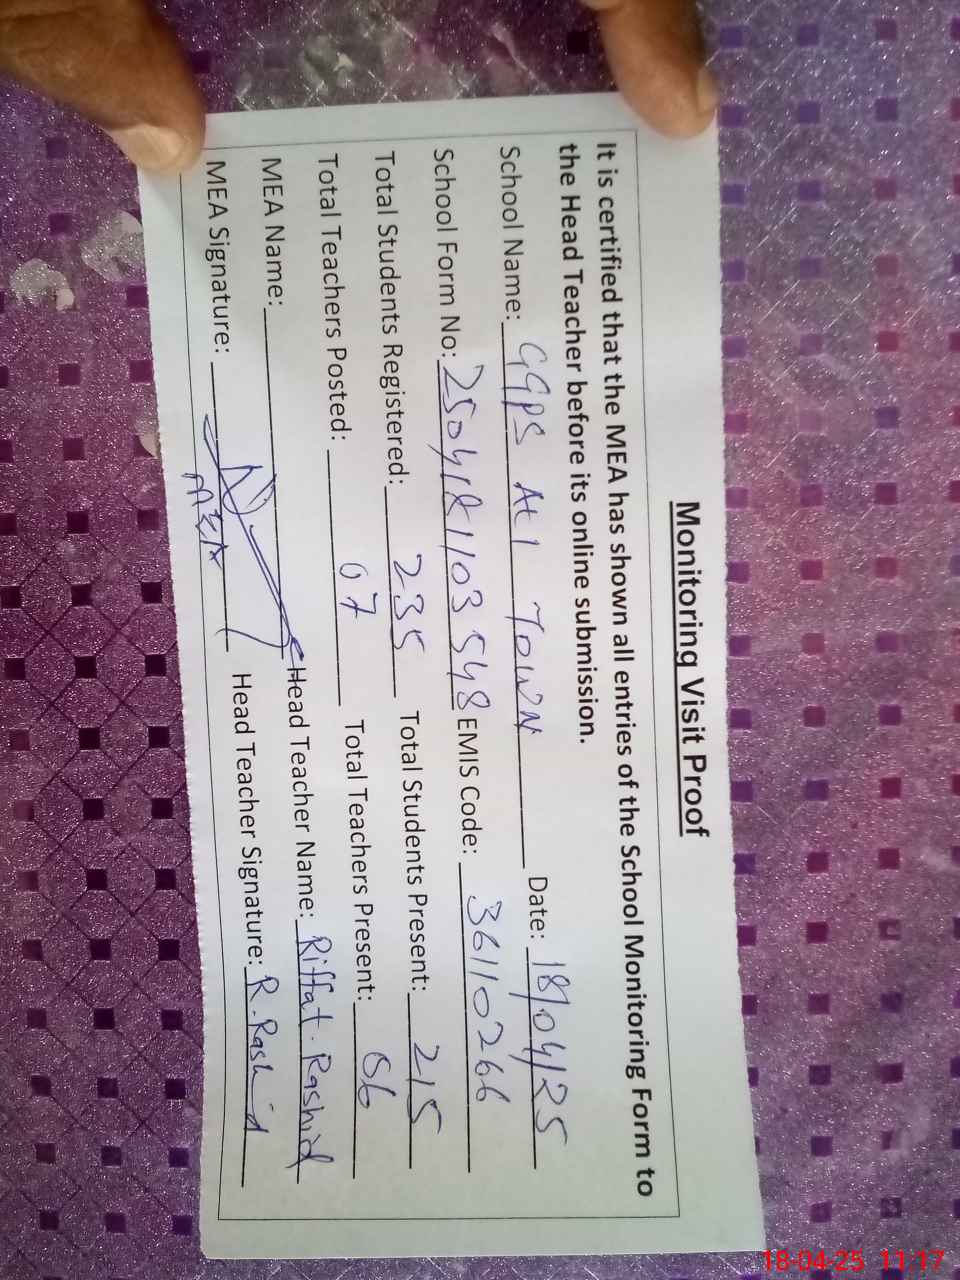 Monitoring Visit Proof
It is certified that the MEA has shown all entries of the School Monitoring Form to
the Head Teacher before its online submission.
School Name: GGPS At1 TOWN Date: 18/04/25
School Form No: EMIS Code: 36110266
Total Students Registered: 235 Total Students Present: 215
Total Teachers Posted: 07 Total Teachers Present: 06
MEA Name: Head Teacher Name: Riffat. Rashid
MEA Signature: MEA Head Teacher Signature: R. Rashid
18-04-25 11:17